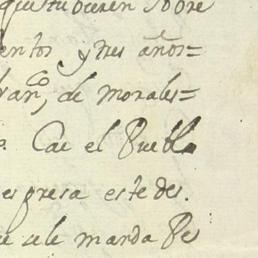 questubieren sobre
entos y tres años=
ran^co, de morales=
Cae el Pueblo
espresa este des.
e se le manda Pe